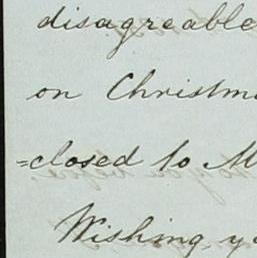 disagreeable
on Christm
=closed to M
Wishing y